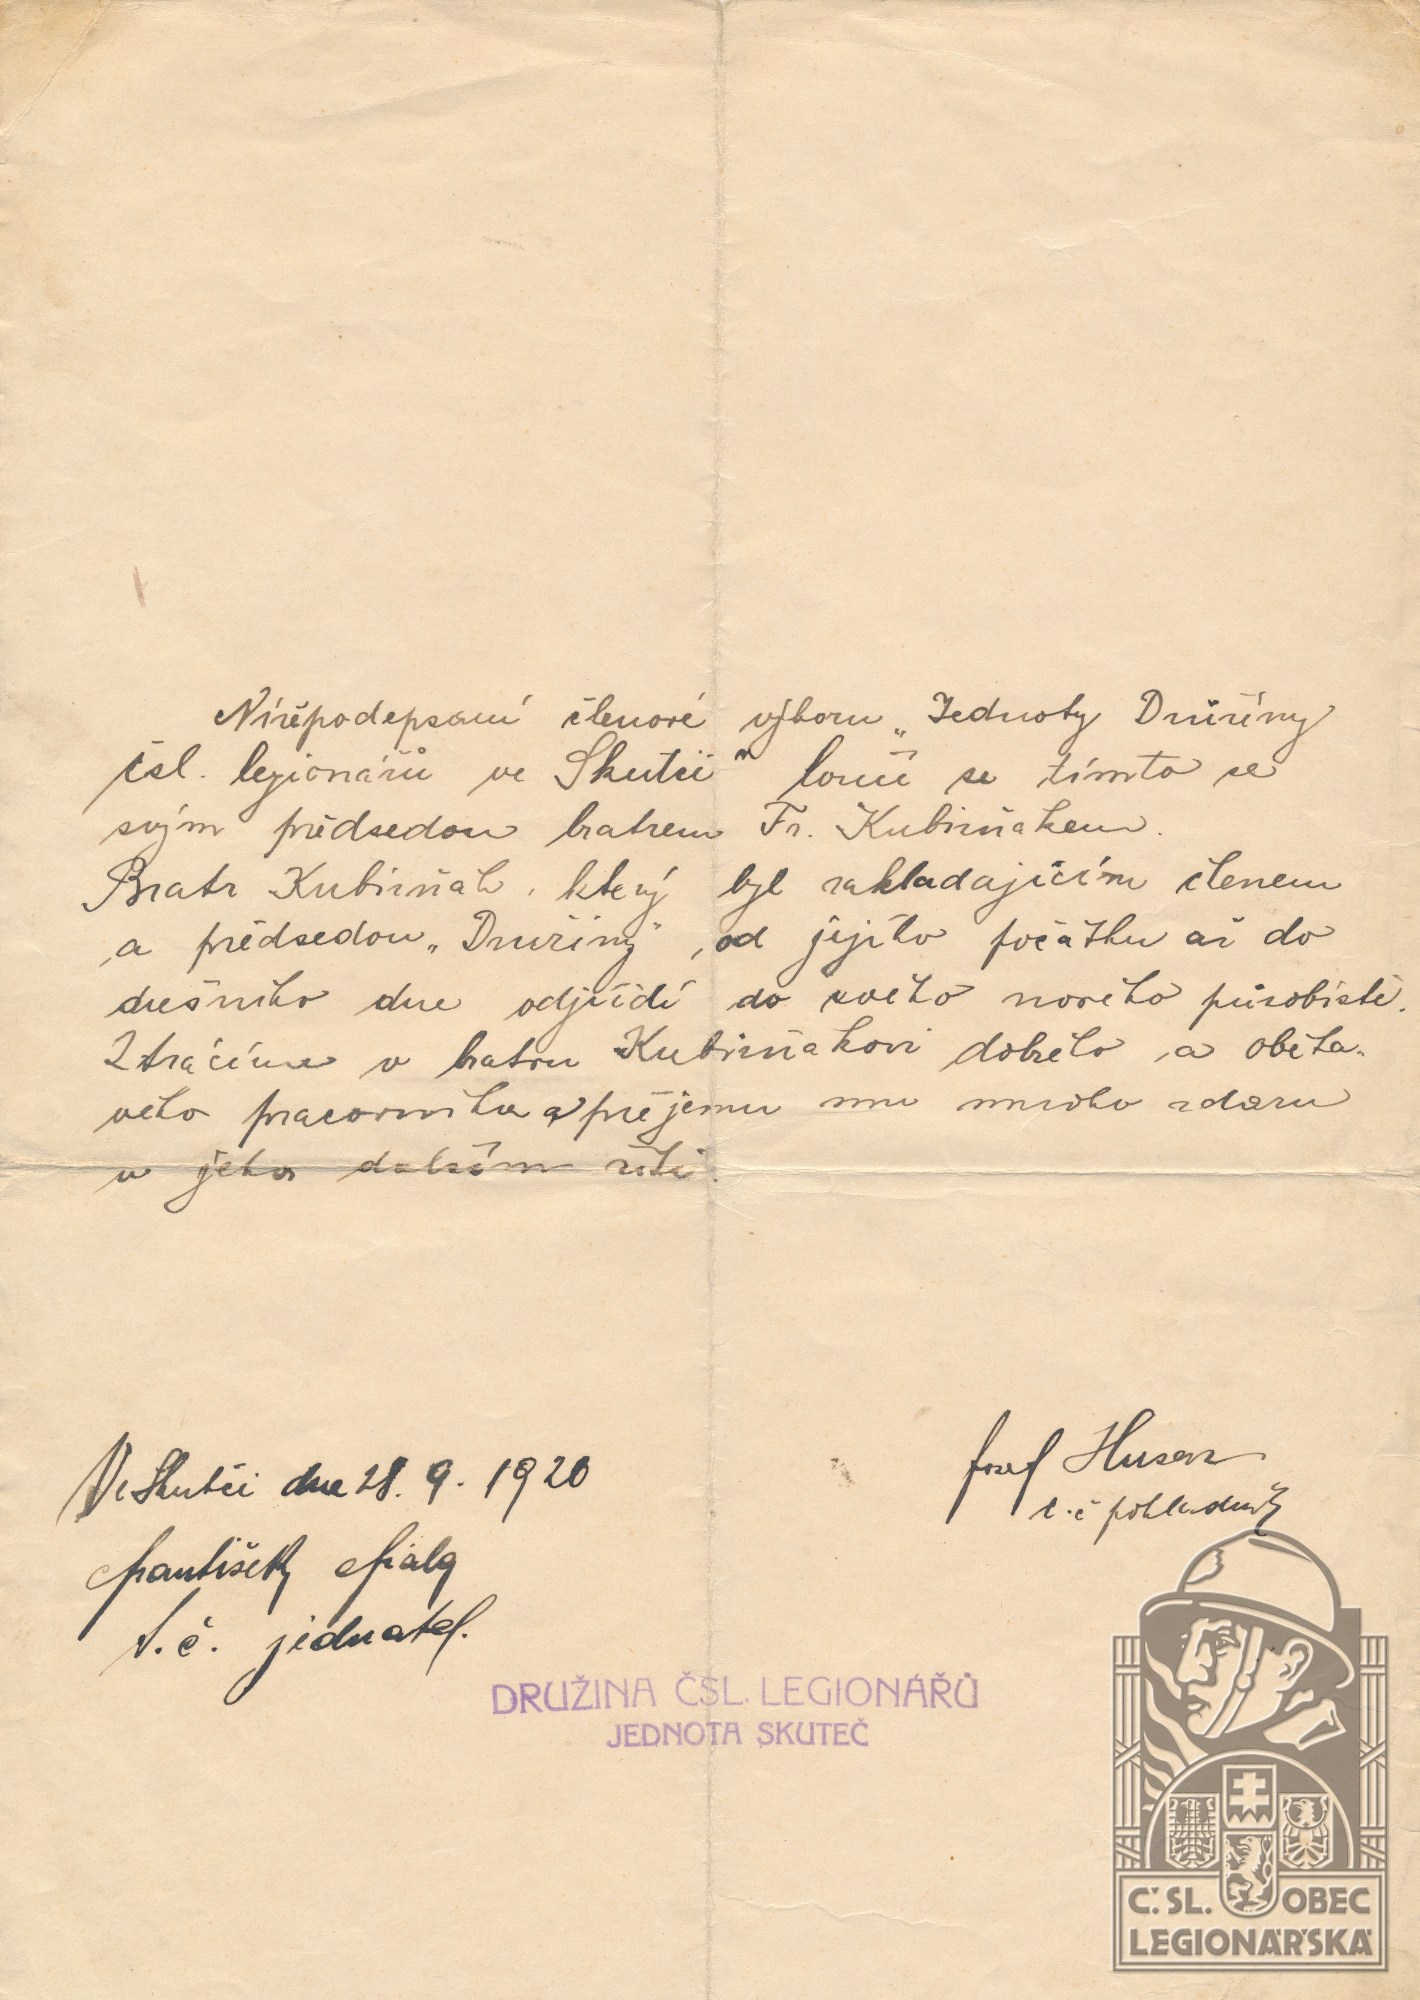 Nížepodepsaní členové výboru „Jednoty Družiny
čsl. legionářů ve Skutči" loučí se tímto se
svým předsedou bratrem Fr. Kubizňakem.
Bratr Kubizňak, který byl zakládajícím členem
a předsedou „Družiny", od jejího počátku až do
dnešního dne odjíždí do svého nového působiště.
Ztrácíme v bratru Kubizňakovi dobrého a oběta-
vého pracovníka a přejemu mu mnoho zdaru
v jeho dalším žití.
Ve Skutči dne 28. 9. 1920
Josef Husar
t. č pokladník
František Fiala
t. č. jednatel.
DRUŽINA ČSL. LEGIONÁŘŮ
JEDNOTA SKUTEČ
Č. SL. OBEC
LEGIONÁŘSKÁ